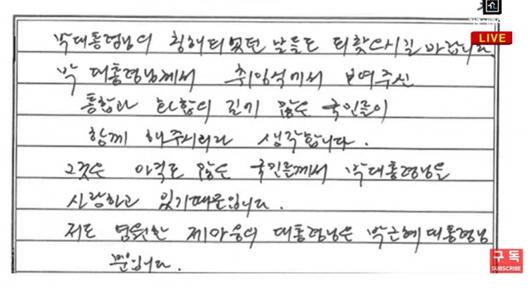 LIVE
박대통령님의 침해되었던 날들도 되찾으시길 바랍니다
박 대통령님께서 취임식에서 보여주신
통합과 화합의 길이 많은 국민들이
함께 해주시리라 생각합니다.
그것은 아직도 많은 국민들께서 박대통령님을
사랑하고 있기때문입니다.
저도 영원한 제마음의 대통령님은 박근혜대통령님
뿐입니다.
구독
SUBSCRIBE